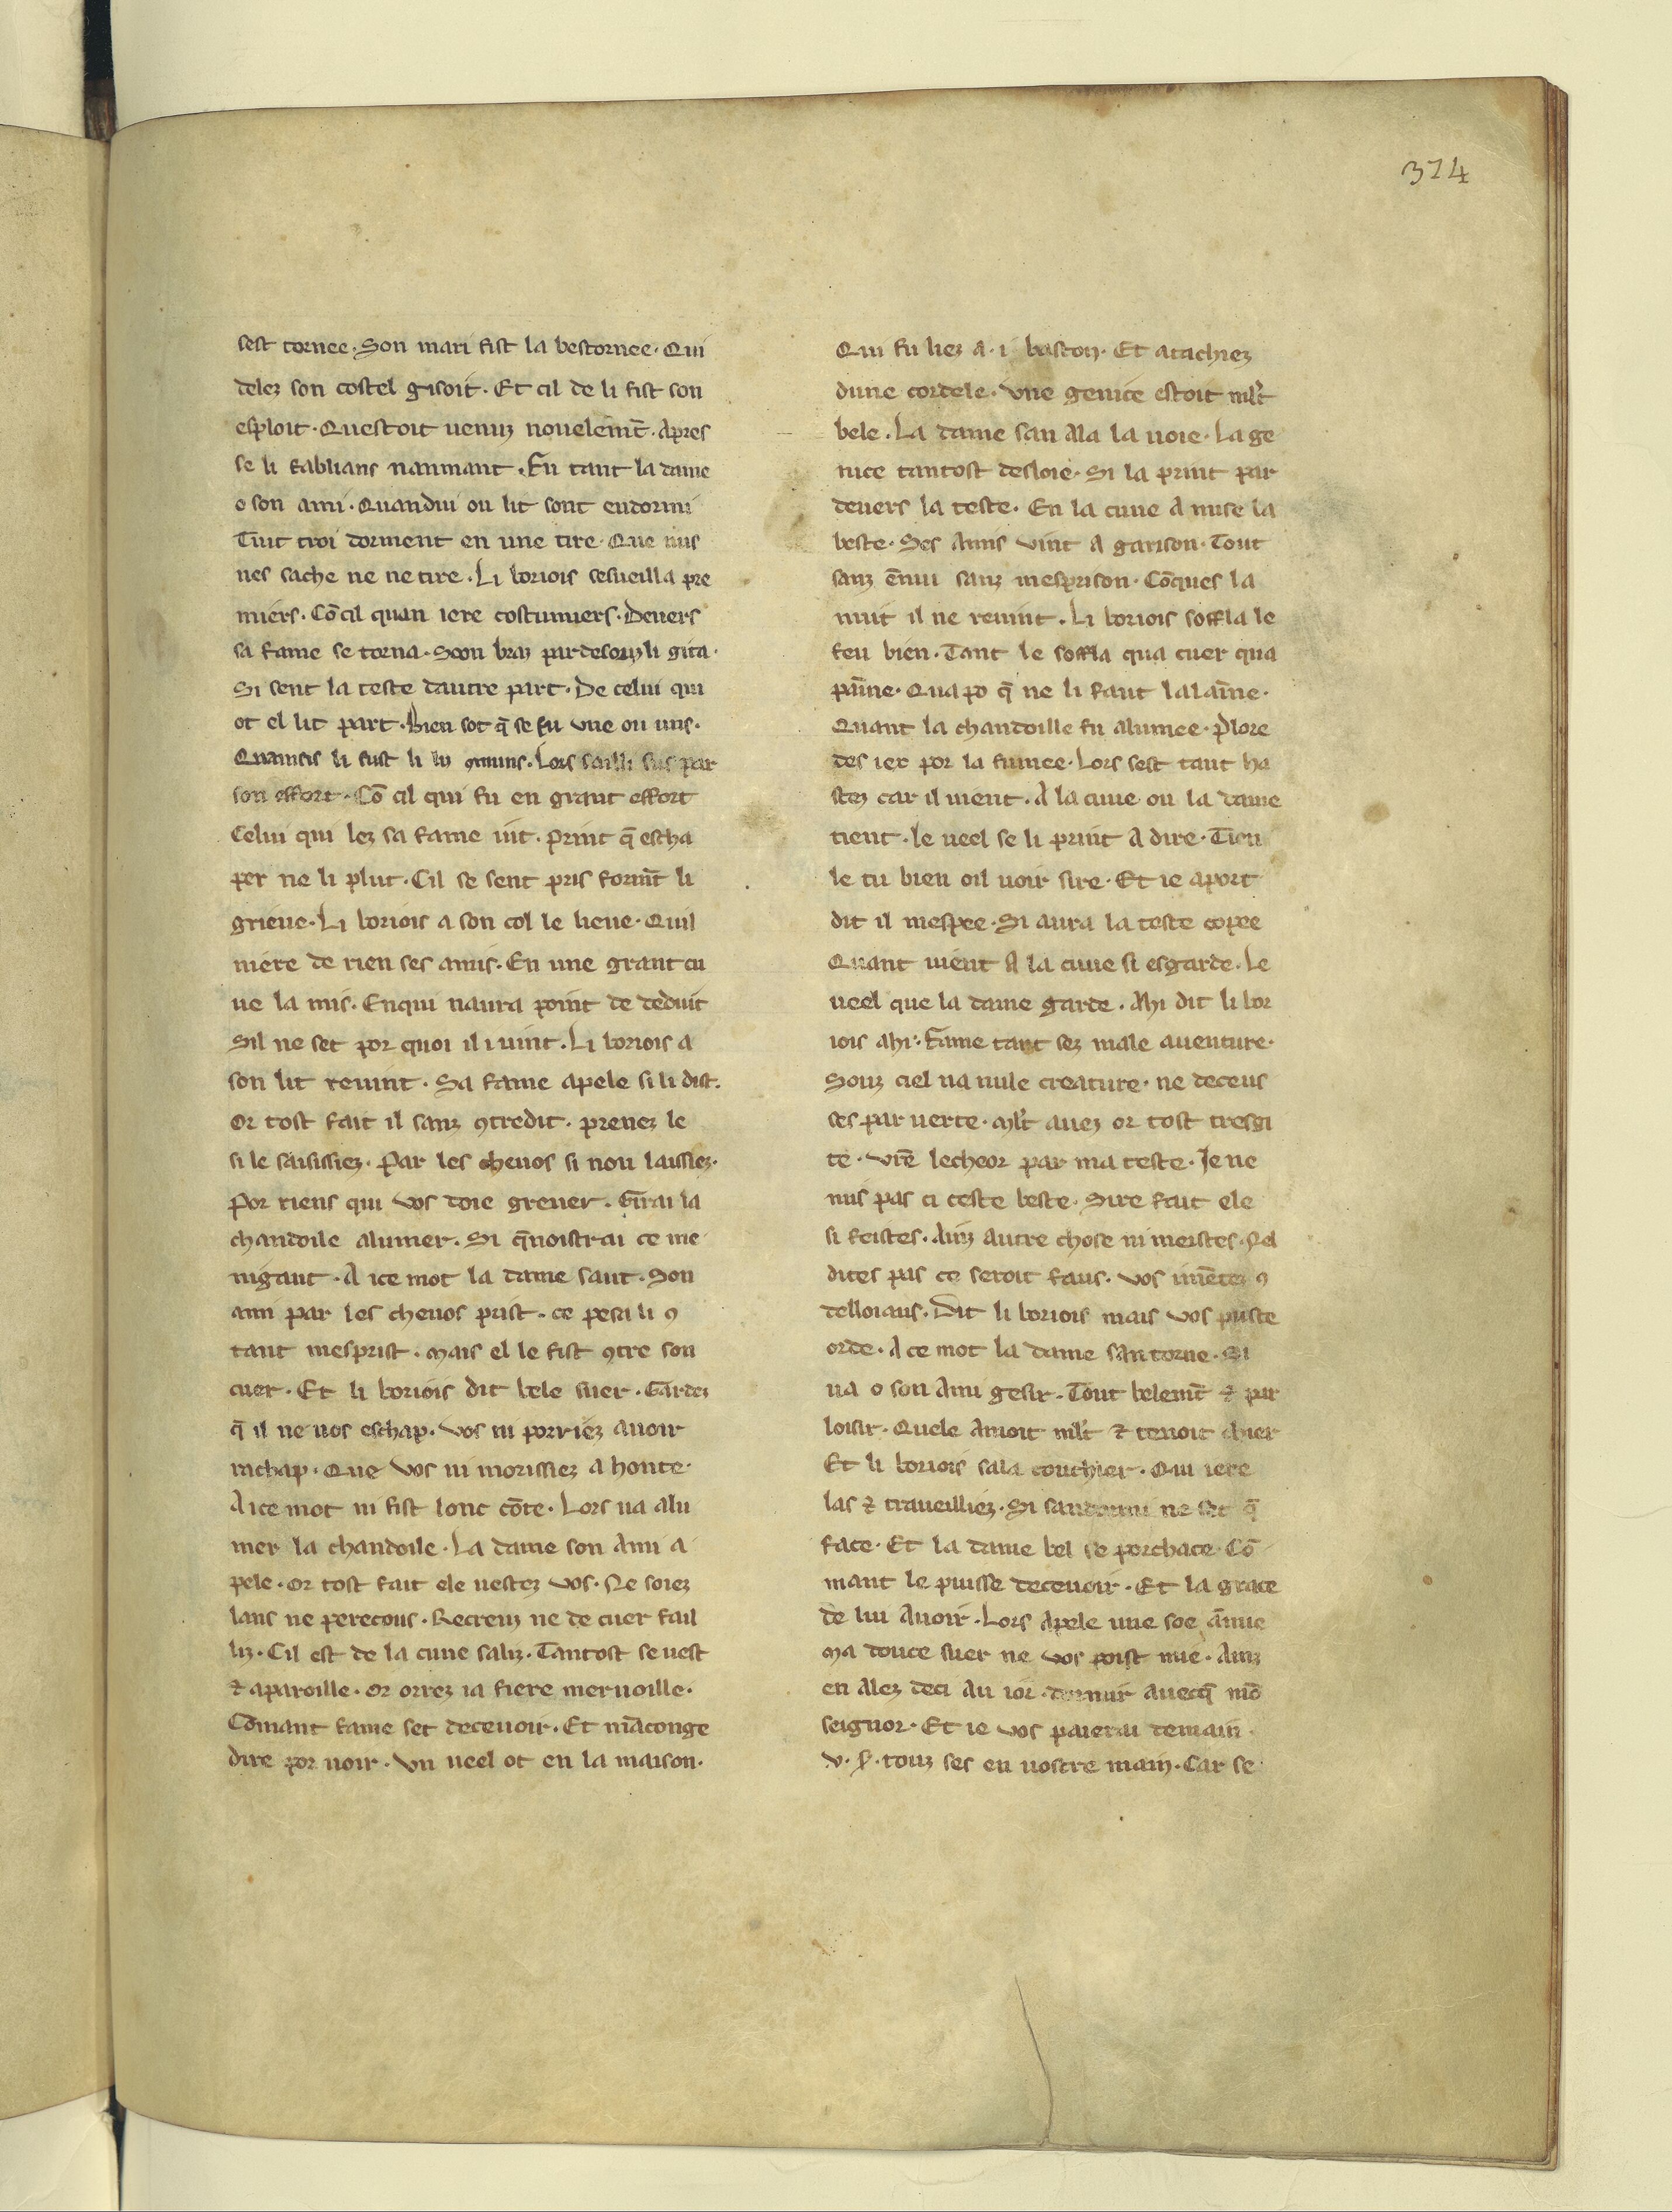 374
sest tornee · Son mari fist la bestornee · Qui
delez son costel gisoit · Et cil de li fist son
esploit · Questoit uenuz nouelem̄t · Apres
se li fablians nanmant · En tant la dame
o son ami · Quandui ou lit sont endormi
Tuit troi dorment en une tire · Que nus
nes sache ne ne tire · Li boriois sesueilla pre
miers · Cō cil quan iere costumiers · Deuers
sa fame se torna · Soon braz par desoz li gita ·
Si sent la teste dautre part · De celui qui
ot el lit part · Bien sot q̄ se fu vne ou uns ·
li fust li · Lors sailli sus par
son effort · Cō cil qui fu en grant effort
Celui qui lez sa fame iut · Print q̄ escha
per ne li plut · Cil se sent pris formt̄ li
grieue · Li boriois a son col le lieue · Quil
niere de rien ses amis · En une grant cu
ue la mis · Enqui naura point de deduit
Sil ne set por quoi il i uint · Li boriois a
son lit reuint · Sa fame apele si li dist ·
Or tost fait il sanz 9tredit · prenez le
si le saisissiez · Par les cheuos si nou laissiez ·
Por riens qui vos doie greuer · Girai la
chandoile alumer · Si q̄noistrai ce me
nigaut · A ice mot la dame saut · Son
ami par les cheuos prist · ce pesa li 9
tant mesprist · Mais el le fist 9tre son
cuer · Et li boriois dit bele suer · Gardez
q̄ il ne uos eschap · Vos ni porriez auoir
rachap · Que vos ni morissiez a honte ·
A ice mot ni fist lonc cōte · Lors ua alu
mer la chandoile · La dame son Ami a
pele · Or tost fait ele uestez vos · Ne soiez
lans ne perecous · Recreuz ne de cuer fail
liz · Cil est de la cuue saliz · Tantost se uest
⁊ aparoille · Or orrez ia fiere meruoille ·
Cōmant fame set deceuoir · Et māconge
dire por uoir · Vn ueel ot en la maison ·
Qui fu liez a · i · baston · Et atachiez
dune cordele · Vne genice estoit ml't
bele · La dame san Ala la uoie · La ge
nice tantost desloie · Si la print par
deuers la teste · En la cuue A mise la
beste · Ses Amis vint A garison · Tout
sanz ēnui sanz mesprison · Cōques la
mut il ne reuint · Li boriois soffla le
feu bien · Tant le soffla qua cuer qua
pāine · Qua po q̄ ne li faut lalaīne ·
Quant la chandoille fu alumee · plore
des iex por la fumee · Lors sest tant ha
stez car il uient · A la cuue ou la dame
tient · le ueel se li print A dire · Tien
le tu bien oil uoir sire · Et ie aport
dit il mespee · Si aura la teste copee
Quant uient A la cuue si esgarde · Le
ueel que la dame garde · Ahi dit li bor
iois ahi · Fame tant sez male auenture ·
Souz ciel na nule creature · ne deceus
ses par uerte · Ml't auez or tost tresgi
te · Vr̄e lecheor par ma teste · Je ne
mis pas ci ceste beste · Sire fait ele
si feistes · Ainz Autre chose ni meistes · Nel
dites pas ce seroit faus · Vos mētez 9
delloiaus · Dit li boriois mais vos puste
orde · A ce mot la dame san torne · Si
ua o son Ami gesir · Tout belem̄t ⁊ par
loisir · Quele Amoit ml't ⁊ tenoit chier
Et li boriois sala couchier · Qui iere
las ⁊ traueilliez · Si sandormi ne set q̄
face · Et la dame bel se porchace · Cō
mant le puisse deceuoir · Et la grace
de lui Auoir · Lors Apele une soe āmie
Ma douce suer ne vos poist mie · Ainz
en Alez deci Au ior · dormir auecq̄ mō
seignor · Et ie vos paierai demain ·
v · s̄ · touz ses en uostre main · Car se